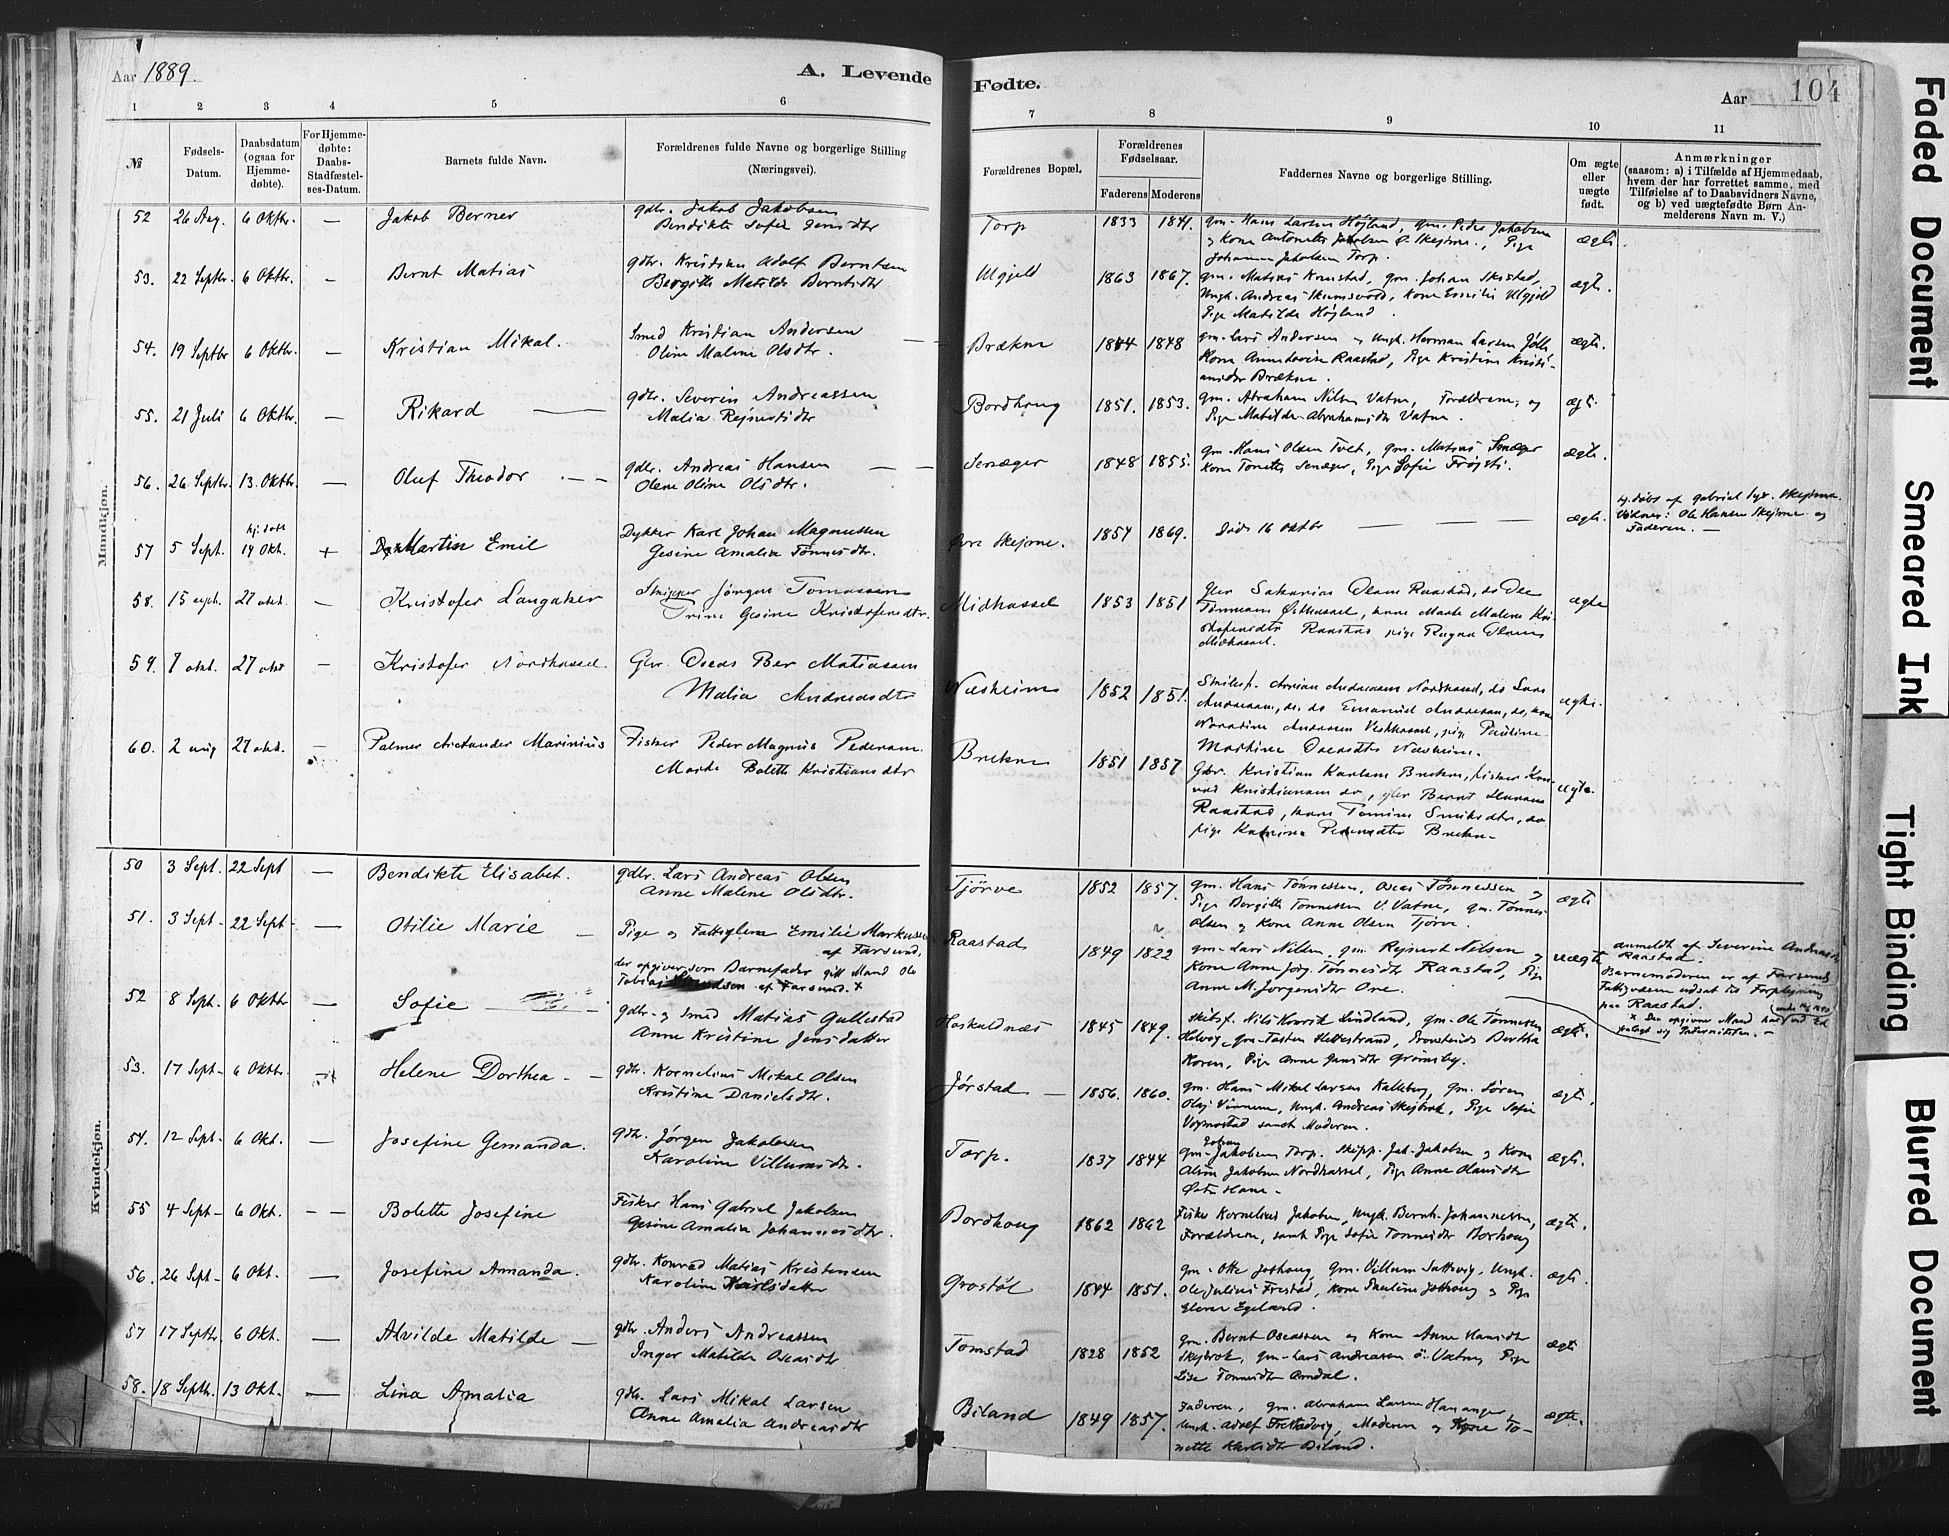 Aar 1889.
A. Levende Fødte.
Aar
104
1 2 3 4 5 6 7 8 9 10 11
№
Fødsels-
Datum.
Daabsdatum
(ogsaa for
Hjemme-
døbte).
For Hjemme-
døbte:
Daabs-
Stadfæstel-
ses-Datum.
Barnets fulde Navn.
Forældrenes fulde Navne og borgerlige Stilling
(Næringsvei).
Forældrenes Bopæl.
Forældrenes
Fødselsaar.
Faderens Moderens
Faddernes Navne og borgerlige Stilling.
Om ægte
eller
uægte
født.
Anmærkninger
(saasom: a) i Tilfælde af Hjemmedaab,
hvem der har forrettet samme, med
Tilføielse af to Daabsvidners Navne,
og b) ved uægtefødte Børn An-
melderens Navn m. V.)
Mandkjøn.
52 26 Aug. 6 Oktbr. — Jakob Berner
gdbr. Jakob Jakobsen
Bendikte Sofie Jensdtr
Torp 1833 1841.
gm. Hans Larsen Højland, gm. Peder Jakobsen
og Kone Antonette Jakobsen Ø. Skejme., Pige
Johanne Jakobsen Torp.
ægte.
53. 22 Septbr. 6 Oktbr. — Bernt Matias
gdbr. Kristian Adolf Berntsen
Bergitte Matilde Berntsdtr
Ulgjeld 1863 1867.
gm. Matias Knustad, gm. Johan Skistad,
Ungk. Andreas Skumsvold, Kone Emilie Ulgjeld
Pige Matilde Højland.
ægte.
54. 19 Septbr 6 Oktbr. — Kristian Mikal.
Smed Kristian Andersen
Oline Malene Olsdtr.
Brækne 1844 1848
gm. Lars Andersen og Ungk. Herman Larsen
Kone Anne Lovise Raastad, Pige Kristine Kristi-
ansdtr Brækne.
ægte.
55. 21 Juli 6 Oktbr. — Rikard
gdbr. Severin Andreassen
Malia Rejnertsdtr
Bordhoug 1851. 1853.
gm. Abraham Nilsen Vatne, Forældrene, og
Pige Matilde Abrahamsdtr Vatne.
ægte.
56. 26. Septbr. 13. Oktbr. — Oluf Theodor
gdbr. Andreas Hansen
Olene Oline Olsdtr.
Senæger 1848 1855.
gm. Hans Olsen Tvet, gm. Matias Senæger
Kone Tonette Senæger, Pige Sofie
ægte.
57 5 Sept. hj. døbt 14 Okt. + Martin Emil
Dykker Karl Johan Magnussen
Gesine Amalia Tønnesdtr.
Øvre Skejme. 1857 1869.
Døde 16 Oktbr
ægte.
hj. døbt af Gabriel Skejme.
Vidner: Ole Hansen Skejme og
Faderen. —
58. 15 sept. 27 okt. — Kristofer Langaker
Skipper Jørgen Tomassen
Trine Gesine Kristofersdtr.
Midhassel 1853 1851
gbr Sakarias Olsen Raastad, do Ole
Tønnesen Østhassel, kone Marte Malene Kri-
stofersdtr Raastad pige Olsen
Midhassel.
ægte
59. 7 okt. 27 okt — Kristofer Nordhassel.
Gbr. Oseas Ber Matiassen
Malia Andreasdtr
Næsheim 1852 1851.
Andreassen Nordhassel, do Lars
Andreassen, do. do Emanuel Andreassen, do, kone
Andreassen Vesthassel, pige Pauline
Martine Oseasdtr Næsheim.
ægte.
60. 2 aug 27 okt. — Palmer Aleksander Marinius
Fisker Peder Magnus Pedersen
Marte Bolette Kristiansdtr
Brekne 1851 1857
Gbr. Kristian Karlsen Brekne, fisker Kon-
rad Kristiansen do, gbr Bernt Hansen
Raastad, kone Tomine do
pige Katrine Pedersdtr Brekne.
ægte.
Kvindekjøn.
50 3 Sept. 22 Sept — Bendikte Elisabet.
gdbr. Lars Andreas Olsen
Anne Malene Olsdtr.
Tjørve 1852 1857.
gm. Hans Tønnessen, Oseas Tønnessen og
Pige Bergitte Tønnessen V. Vatne, gm. Tønnes
Olsen og Kone Anne Olsen Tjørve.
ægte
51. 3 Sept. 22 Sept. — Otilie Marie
Pige og Fattiglem Emilie Markussen
af Farsund,
der opgiver som Barnefader gift Mand Ole
Tobias af Farsund. +
Raastad 1849 1822
gm. Lars Nilsen, gm. Rejnert Nilsen og
Kone Anne Jørg. Tønnesdtr Raastad, Pige
Anne M. Jørgensdtr Ore.
uægte
anmeldt af Severine Andreasdtr
Raastad.
Barnemoderen er af Farsunds
Fattigvæsen udsat til Forplejning
paa Raastad.
+ Den opgivne Mand har ved Ed
fralagt sig Paterniteten. —
52 8 Sept. 6 Oktbr — Sofie
gdbr. og Smed Matias Gullestad
Anne Kristine Jensdatter
Hoskuldnæs 1845 1849.
Skibsf. Nils Henrik Lindland, gm. Ole Tønnessen
Helvig, gm. Tosten Hettestrand, Bertha
Koren, Pige Anne Jensdtr Grimsby.
ægte.
53. 17 Sept. 6 Oktbr. Helene Dorthea
gdbr. Kornelius Mikal Olsen
Kristine Danielsdtr.
Jørstad 1856. 1860.
gm. Hans Mikal Larsen Kalleberg, gm. Søren
Olaj Vinnem, Ungk. Andreas Skejbrok, Pige Sofie
Vøjmostad samt Moderen.
ægte.
54. 12 Sept. 6 Okt. — Josefine Gemanda.
gdbr. Jørgen Jakobsen
Karoline Villumsdtr.
Torp. 1837 1844
gm. Johan Jakobsen Torp. Skipp. Jak. Jakobsen og Kone
Jakobsen Nordhassel, Pige Anne Olausdtr
Østre Hane.
ægte.
55 4 Sept. 6 Okt. — Bolette Josefine
Fisker Hans Gabriel Jakobsen
Gesine Amalia Johannesdtr.
Bordhoug 1862 1862
Fisker Kornelius Jakobsen, Ungk. Bernh. Johannessen,
Forældrene, samt Pige Sofie Tønnesdtr Borhoug
ægte.
56. 26 Sept. 6 Okt. — Josefine Amanda.
gdbr. Konrad Matias Kristensen
Karoline Karlsdatter
Grostøl 1844 1851.
gm. Otto Jølhoug, gm. Villum Sattevig, Ungk.
Ole Julius Frestad, Kone Pauline Jølhoug og Pige
Elena Egeland.
ægte.
57 17 Septbr. 6 Okt. — Alvilde Matilde
gdbr. Anders Andreassen
Inger Matilde Oseasdtr
Tomstad 1828 1852
gm. Bernt Oseassen og Kone Anne Hansdtr
Skejbrok, gm. Lars Andreassen ø. Vatne, Pige
Lise Tønnesdtr Amdal.
ægte
58. 18 Septbr. 13 Okt. — Lina Amalia
gdbr. Lars Mikal Larsen
Anne Amalia Andreasdtr
Biland 1849 1857.
Faderen, gm. Abraham Larsen Hananger,
Ungk. Adolf, Moderen og Kone To-
nette Karlsdtr Biland.
ægte.
Faded Document
Smeared Ink
Tight Binding
Blurred Document